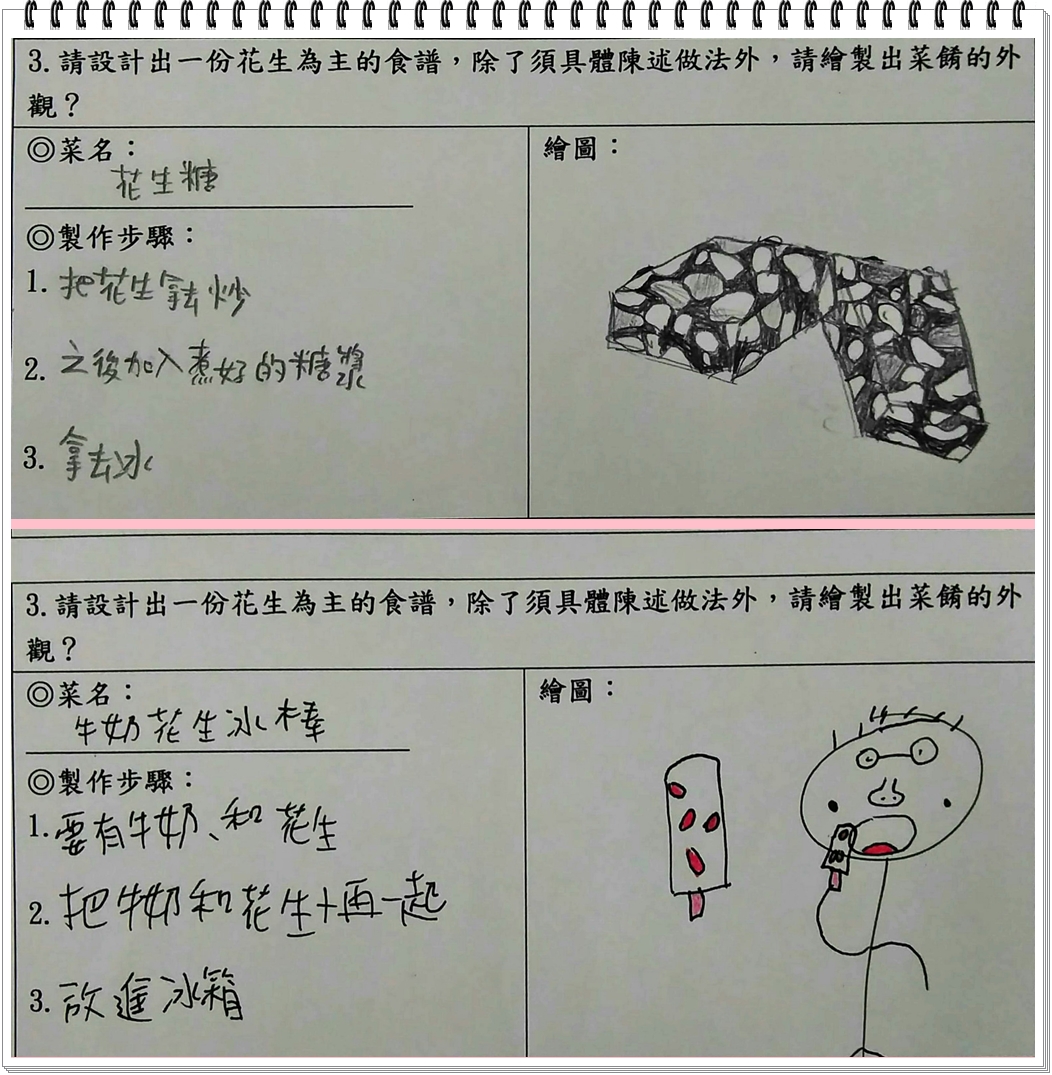 3.請設計出一份花生為主的食譜，除了須具體陳述做法外，請繪製出菜餚的外
觀？
◎菜名：
花生糖
◎製作步驟：
1. 把花生拿去炒
2. 之後加入煮好的糖漿
3. 拿去冰
繪圖：
3.請設計出一份花生為主的食譜，除了須具體陳述做法外，請繪製出菜餚的外
觀？
◎菜名：
牛奶花生冰棒
◎製作步驟：
1. 要有牛奶、和花生
2. 把牛奶和花生+再一起
3. 放進冰箱
繪圖：